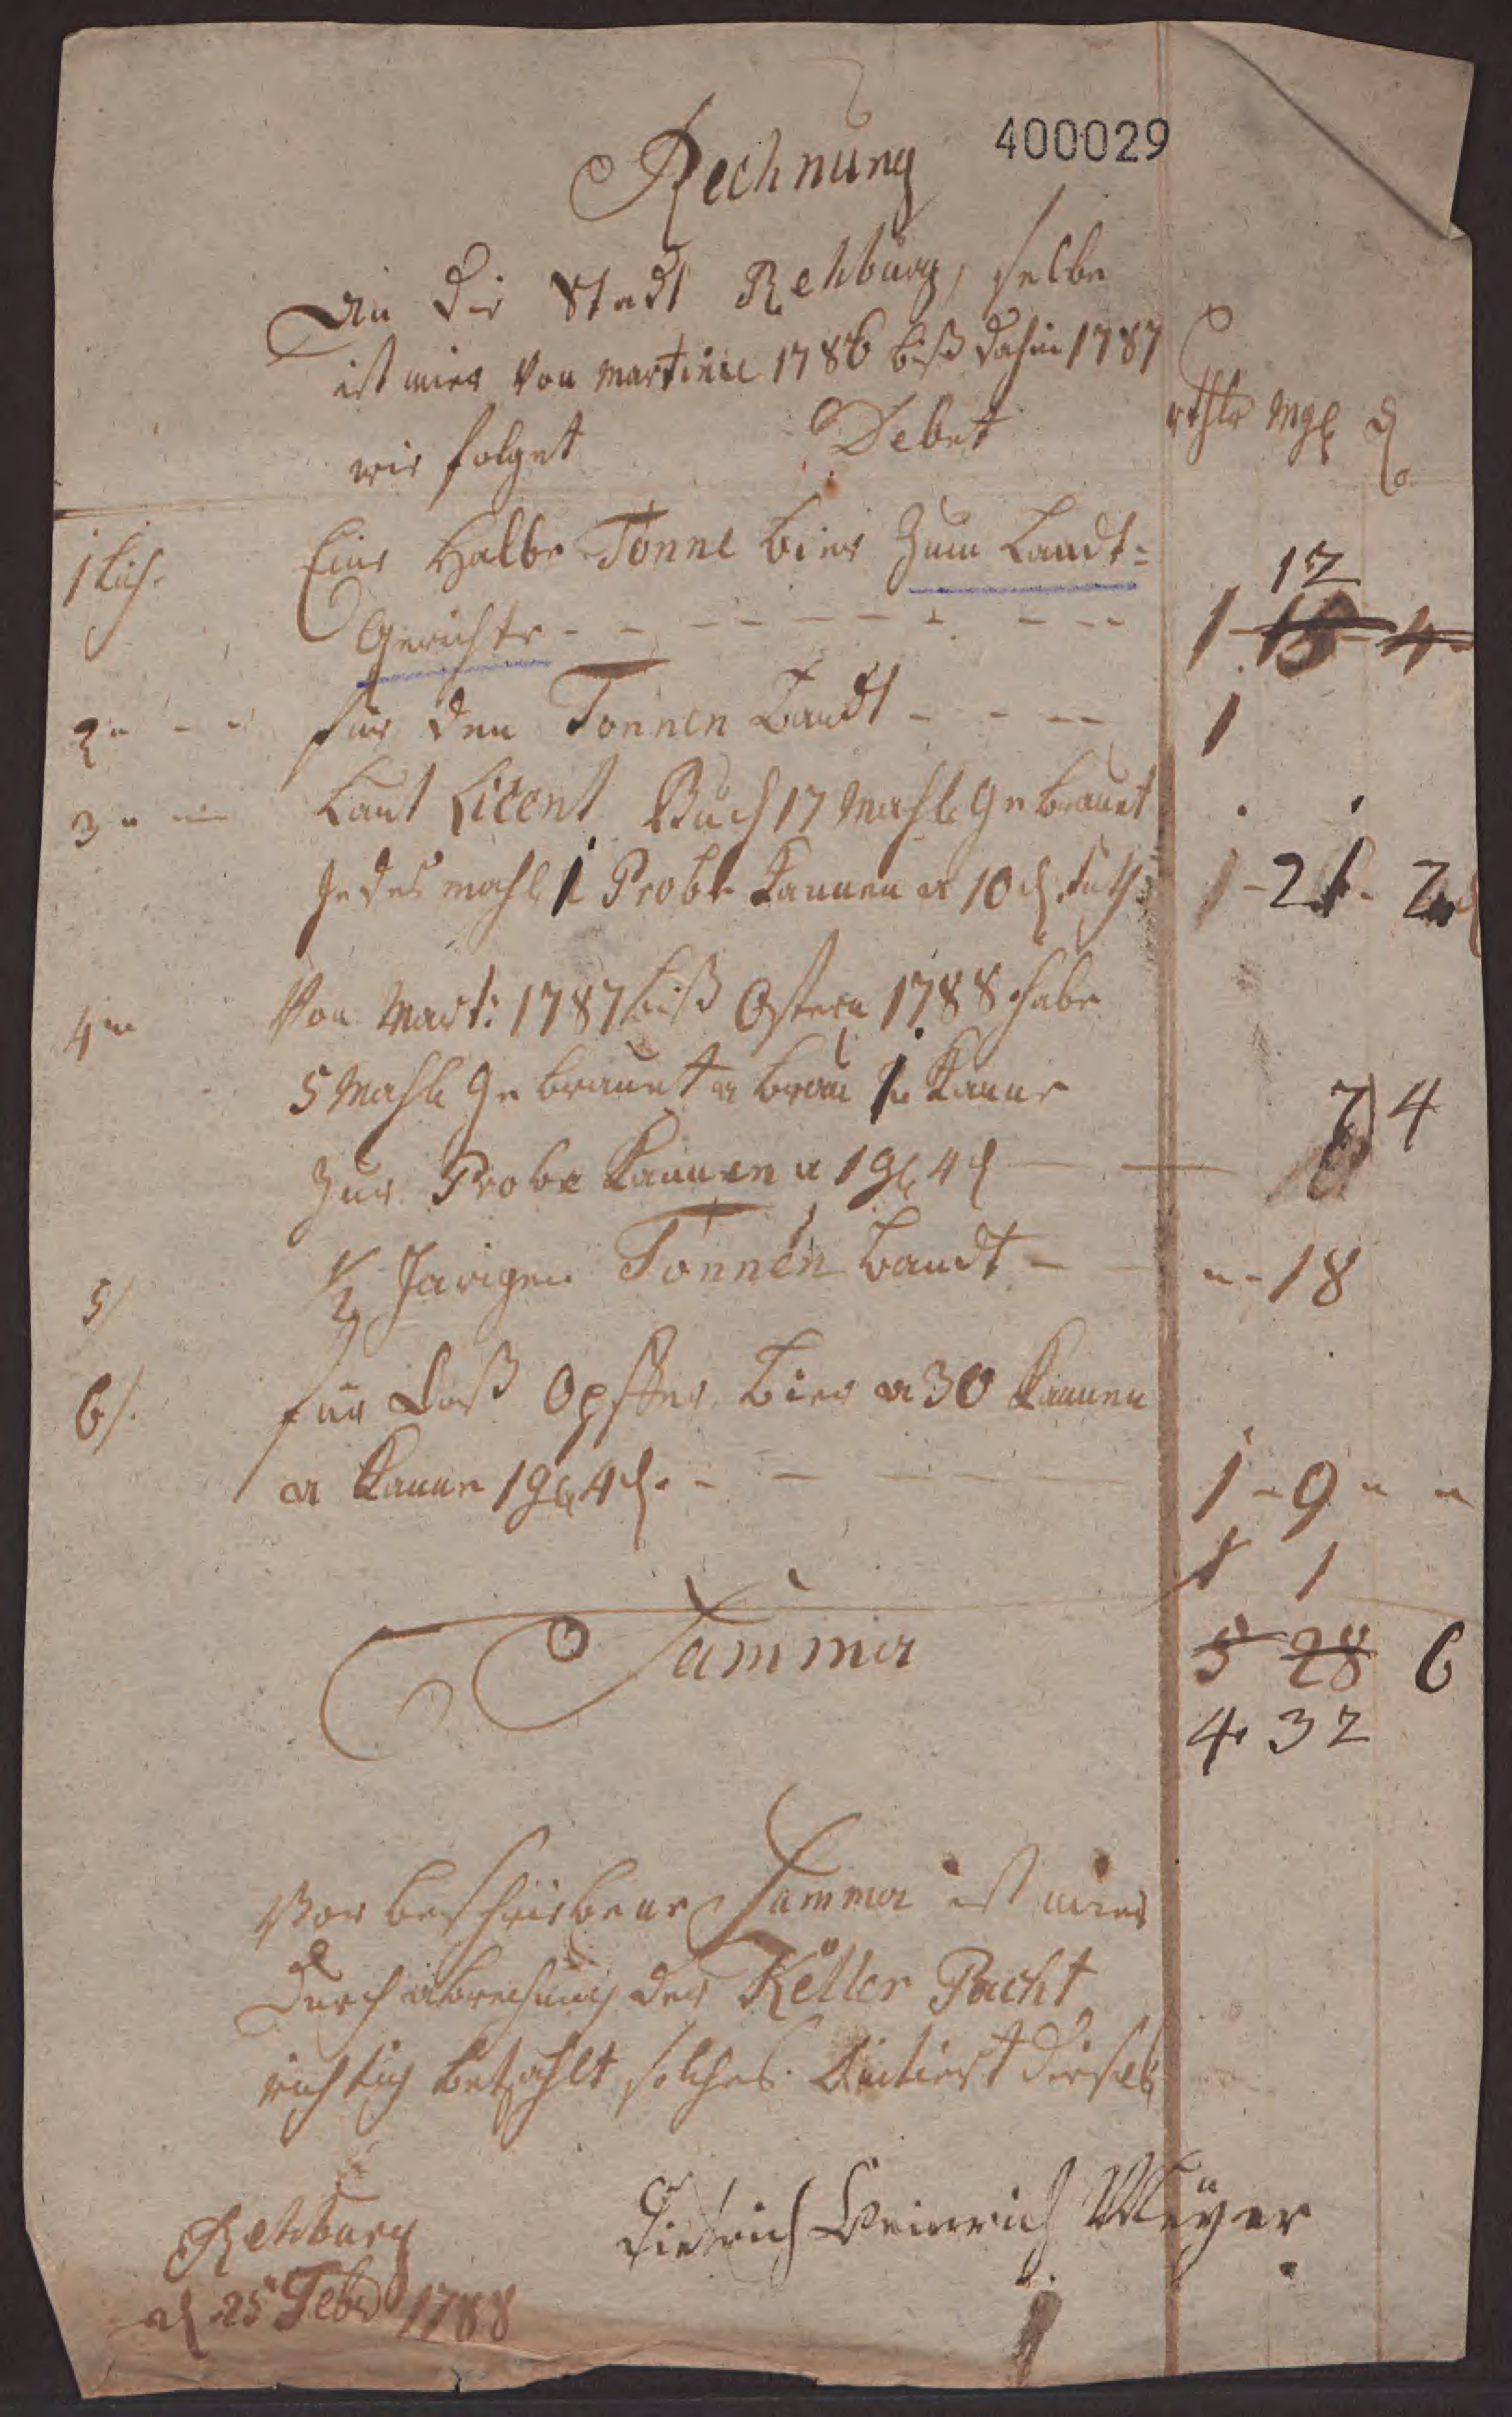 Rechnung 400029
An die Stadt Rehburg, selbe
ist mier von Martinie 1786 biß dahin 1787
wie folget Debet rthlr Mgl d
1 lich. Eine Halbe Tonne bier zum Landt=
12
Gerichte - - - - - - - - 1 - 15 - 4
2 " - " für den Tonnen bandt - - - 1
3 " " Laut Licent Buch 17 Mahl gebrauet
jedes mahl 1 Probe Kannen a 10 d 1 - 21 - 2
4 " Von Mart: 1787 biß Ostern 1788 habe
5 Mahl gebrauet a brau 1 Kanne
zur Probe Kannen a 1 gl 4 d — 7 4
5/ 1/2 Jarigen Tonnen bandt - " - 18
6/. für daß Opffer bier a 30 Kannen
a Kanne 1 gl 4 d. - - - 1 - 9 " "
1 1
Summa 5 28 6
4. 32
Vor beschriebene Summa ist mier
durch abrechnung der Keller Pacht
richtig betzahlt solches
Rehburg Dietrich Heinrich Meÿer
d 25 Febr 1788